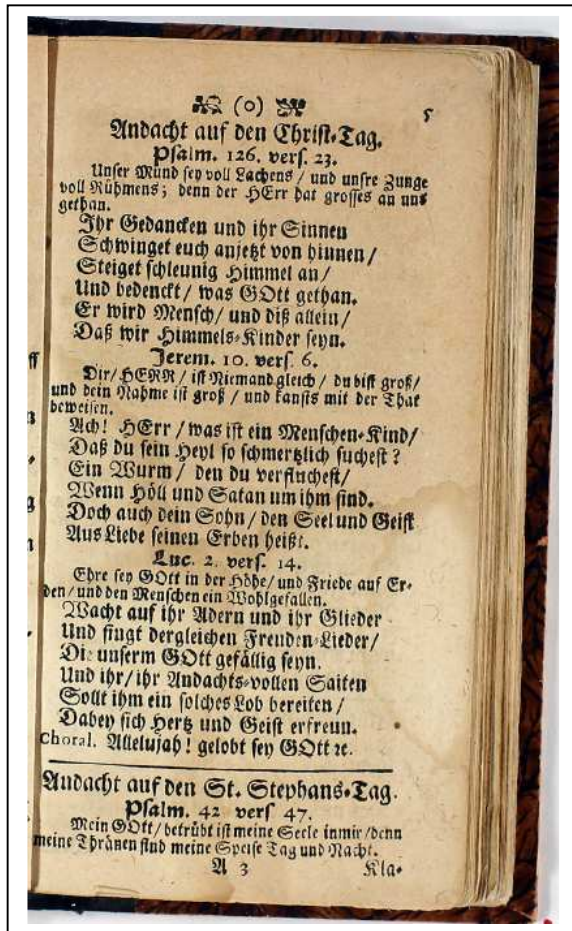 (o) 5
Andacht auf den Christ-Tag.
Psalm. 126. vers. 23.
Unser Mund sey voll Lachens / und unsre Zunge
voll Rühmens; denn der HErr hat grosses an uns
gethan.
Ihr Gedancken und ihr Sinnen
Schwinget euch anjetzt von hinnen /
Steiget schleunig Himmel an /
Und bedenckt / was GOtt gethan.
Er wird Mensch / und diß allein /
Daß wir Himmels-Kinder seyn.
Jerem. 10. vers. 6.
Dir / HERR / ist Niemand gleich / du bist groß /
und dein Nahme ist groß / und kansts mit der That
beweisen.
Ach! HErr / was ist ein Menschen-Kind /
Daß du sein Heyl so schmertzlich suchest?
Ein Wurm / den du verfluchest /
Wenn Höll und Satan um ihm sind.
Doch auch dein Sohn / den Seel und Geist
Aus Liebe seinen Erben heißt.
Luc. 2. vers. 14.
Ehre sey GOtt in der Höhe / und Friede auf Er-
den / und den Menschen ein Wohlgefallen.
Wacht auf ihr Adern und ihr Glieder
Und singt dergleichen Freuden-Lieder /
Die unserm GOtt gefällig seyn.
Und ihr / ihr Andachts-vollen Saiten
Sollt ihm ein solches Lob bereiten /
Dabey sich Hertz und Geist erfreun.
Choral. Allelujah! gelobt sey GOtt ꝛc.
Andacht auf den St. Stephans-Tag.
Psalm. 42 vers 47.
Mein GOtt / betrübt ist meine Seele in mir / denn
meine Thränen sind meine Speise Tag und Nacht.
A 3 Kla-